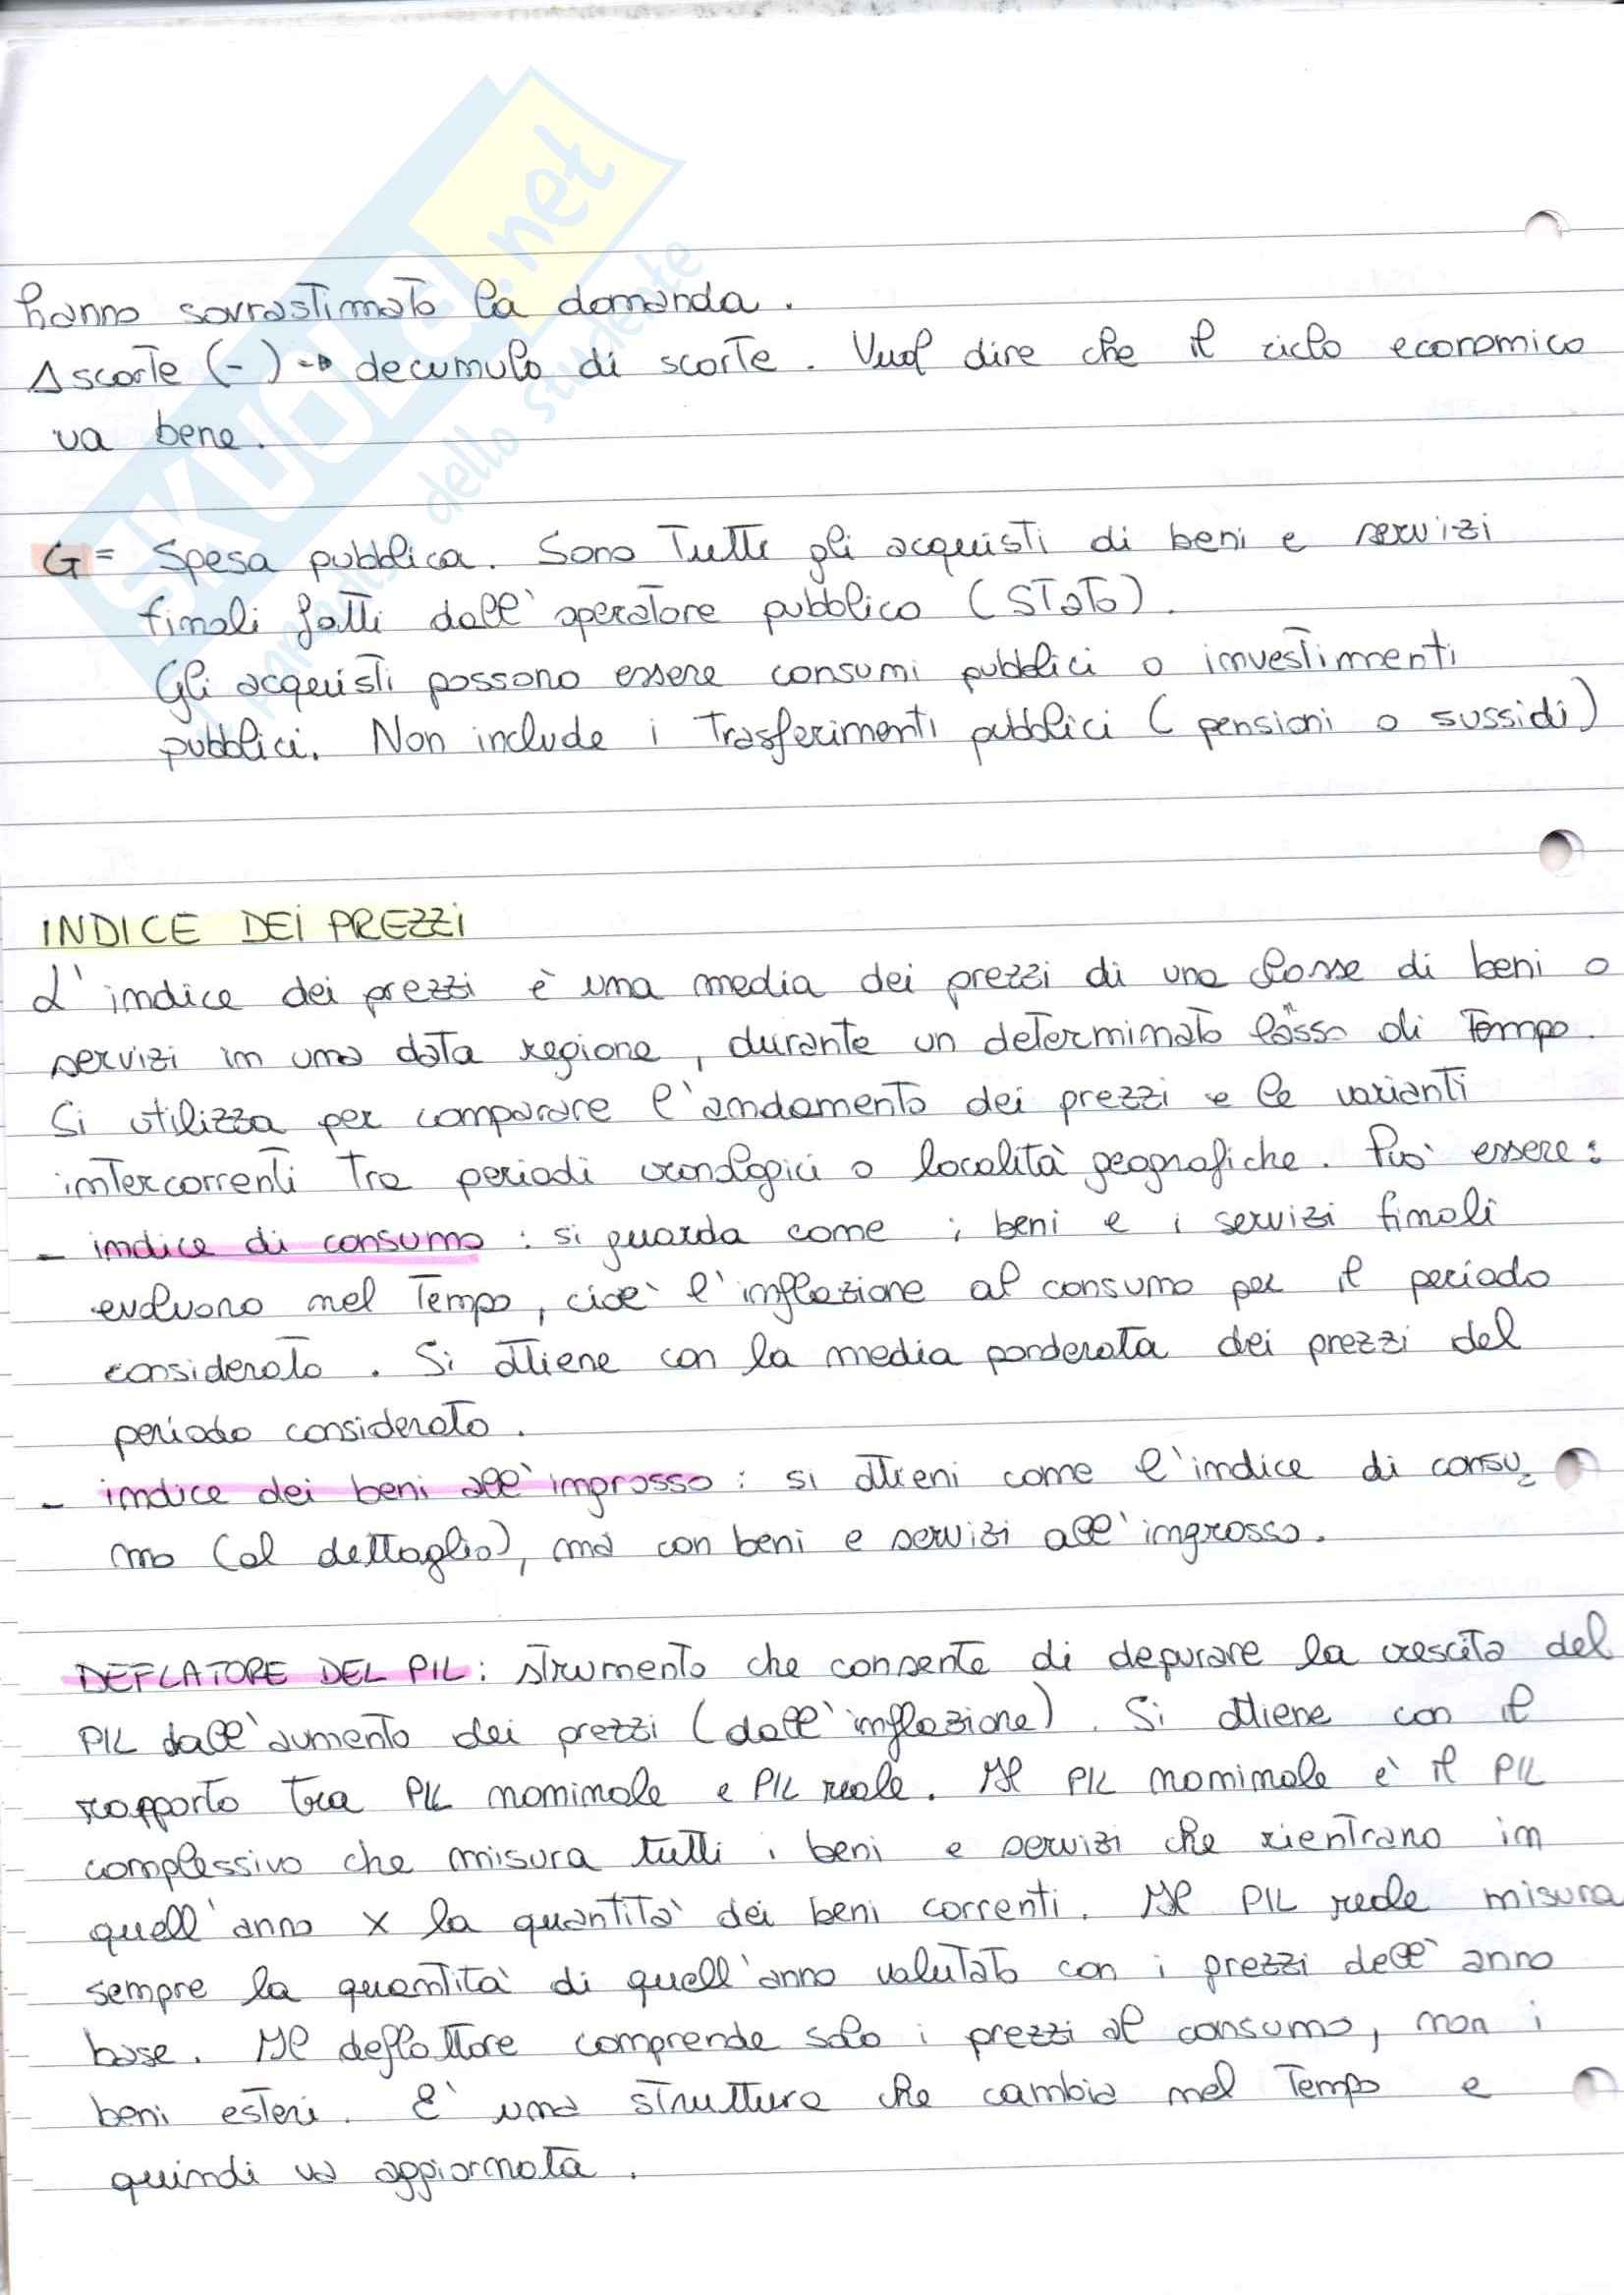 SKUOLA.net
il paradiso dello studente
hanno sovrastimato la domanda.
Δ scorte (-) → decumulo di scorte. Vuol dire che il ciclo economico
va bene.
G = Spesa pubblica. Sono tutti gli acquisti di beni e servizi
finali fatti dall'operatore pubblico (Stato).
Gli acquisti possono essere consumi pubblici o investimenti
pubblici. Non include i trasferimenti pubblici (pensioni o sussidi)
INDICE DEI PREZZI
L'indice dei prezzi è una media dei prezzi di una classe di beni o
servizi in una data regione, durante un determinato lasso di tempo.
Si utilizza per comparare l'andamento dei prezzi e le varianti
intercorrenti tra periodi cronologici o località geografiche. Può essere:
- indice di consumo: si guarda come i beni e i servizi finali
evolvono nel tempo, cioè l'inflazione al consumo per il periodo
considerato. Si ottiene con la media ponderata dei prezzi del
periodo considerato.
- indice dei beni all'ingrosso: si ottieni come l'indice di consu=
mo (al dettaglio), ma con beni e servizi all'ingrosso.
DEFLATORE DEL PIL: strumento che consente di depurare la crescita del
PIL dall'aumento dei prezzi (dall'inflazione). Si ottiene con il
rapporto tra PIL nominale e PIL reale. Il PIL nominale è il PIL
complessivo che misura tutti i beni e servizi che rientrano in
quell'anno x la quantità dei beni correnti. Il PIL reale misura
sempre la quantità di quell'anno valutato con i prezzi dell'anno
base. Il deflattore comprende solo i prezzi al consumo, non i
beni esteri. È una struttura che cambia nel tempo e
quindi va aggiornata.